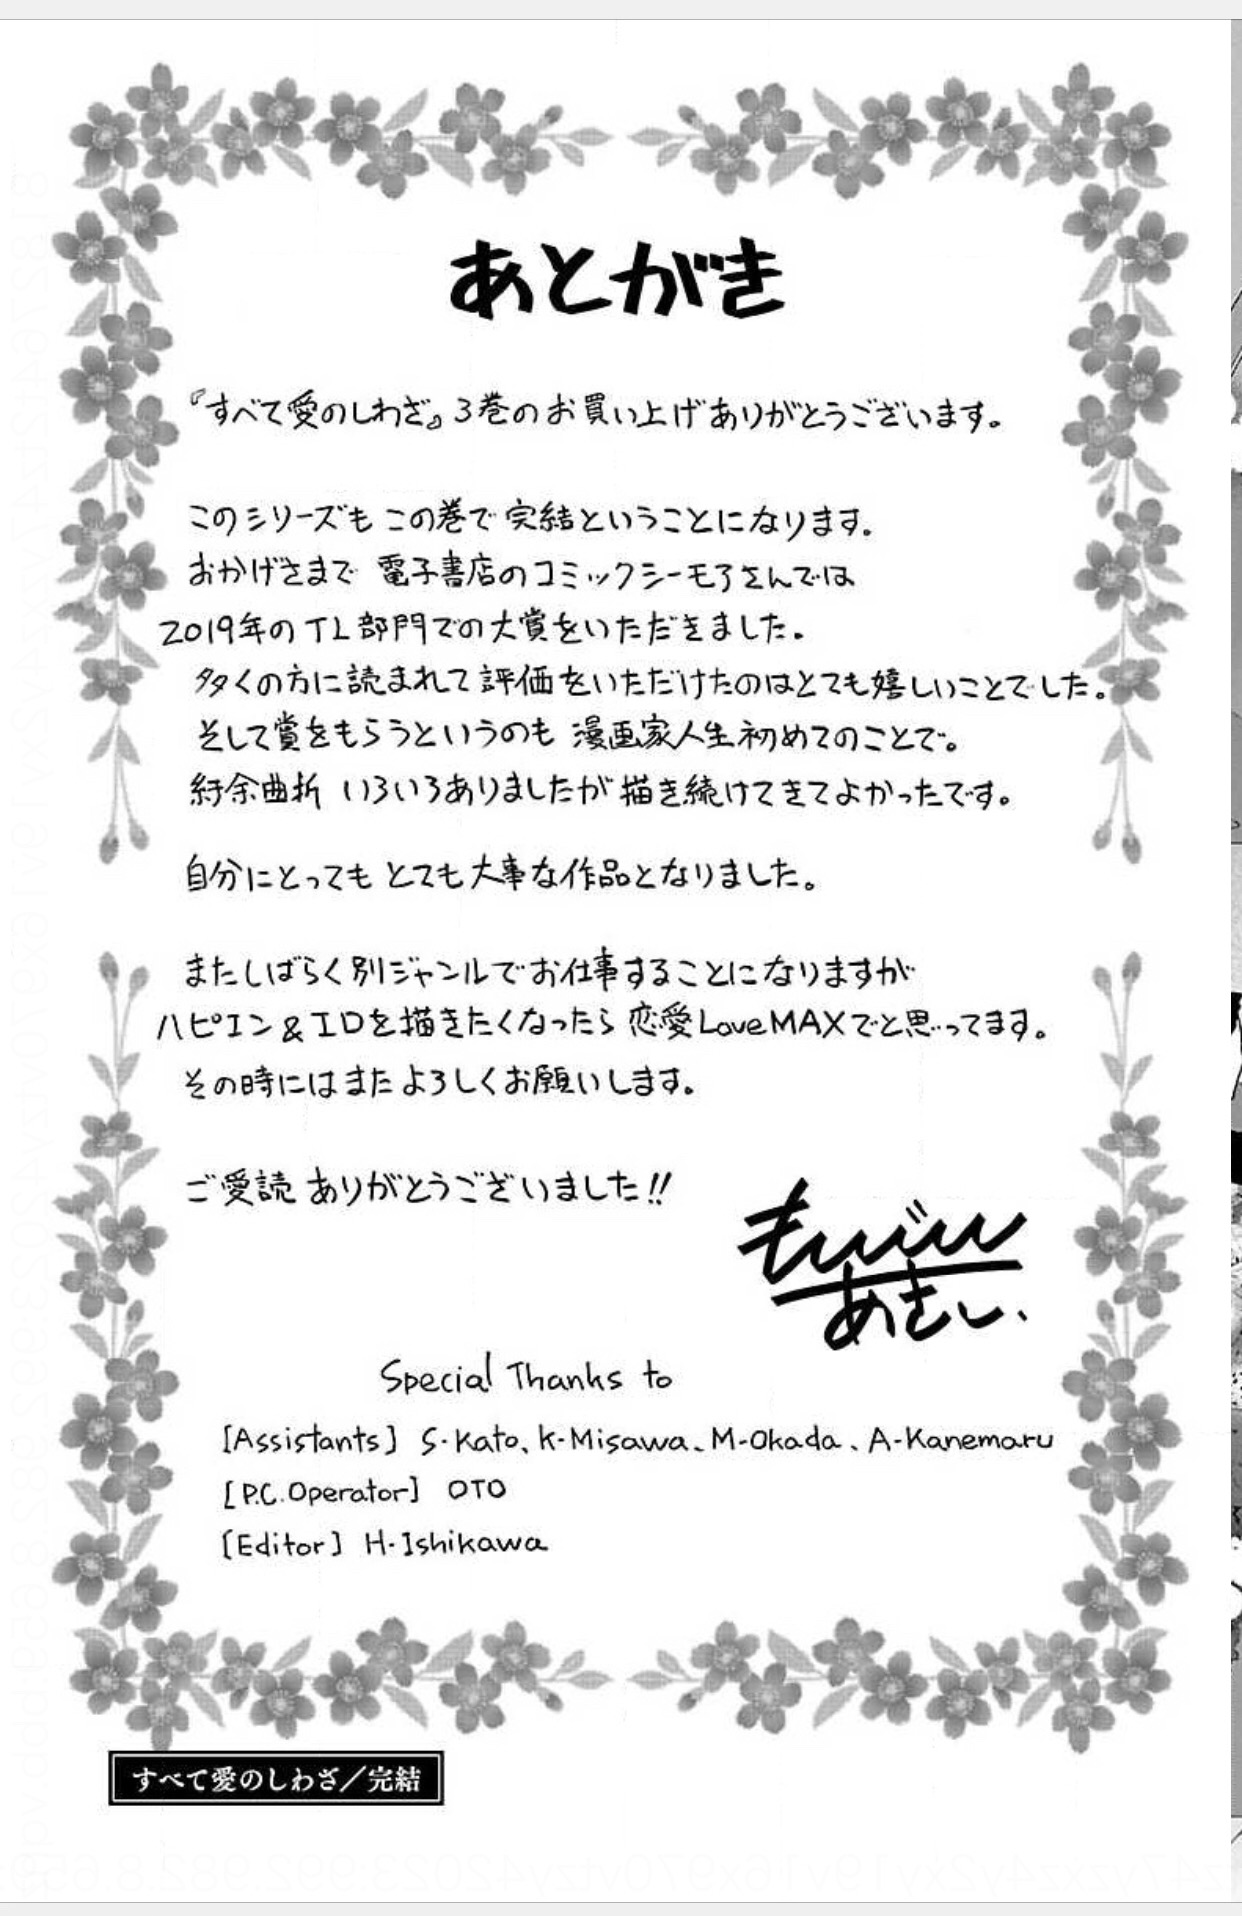 あとがき
『すべて愛のしわざ』3巻のお買い上げありがとうございます。
このシリーズも この巻で 完結ということになります。
おかげさまで 電子書店のコミックシーモアさんでは
2019年のTL部門での大賞をいただきました。
多くの方に読まれて評価をいただけたのはとても嬉しいことでした。
そして賞をもらうというのも 漫画家人生初めてのことで。
紆余曲折 いろいろありましたが描き続けてきてよかったです。
自分にとっても とても大事な作品となりました。
またしばらく別ジャンルでお仕事することになりますが
ハピエン&エロを描きたくなったら 恋愛LoveMAXでと思ってます。
その時にはまたよろしくお願いします。
ご愛読 ありがとうございました!!
Special Thanks to
[Assistants] S・Kato、K・Misawa、M・Okada、A・Kanemaru
[P.C.Operator] OTO
[Editor] H・Ishikawa
すべて愛のしわざ/完結